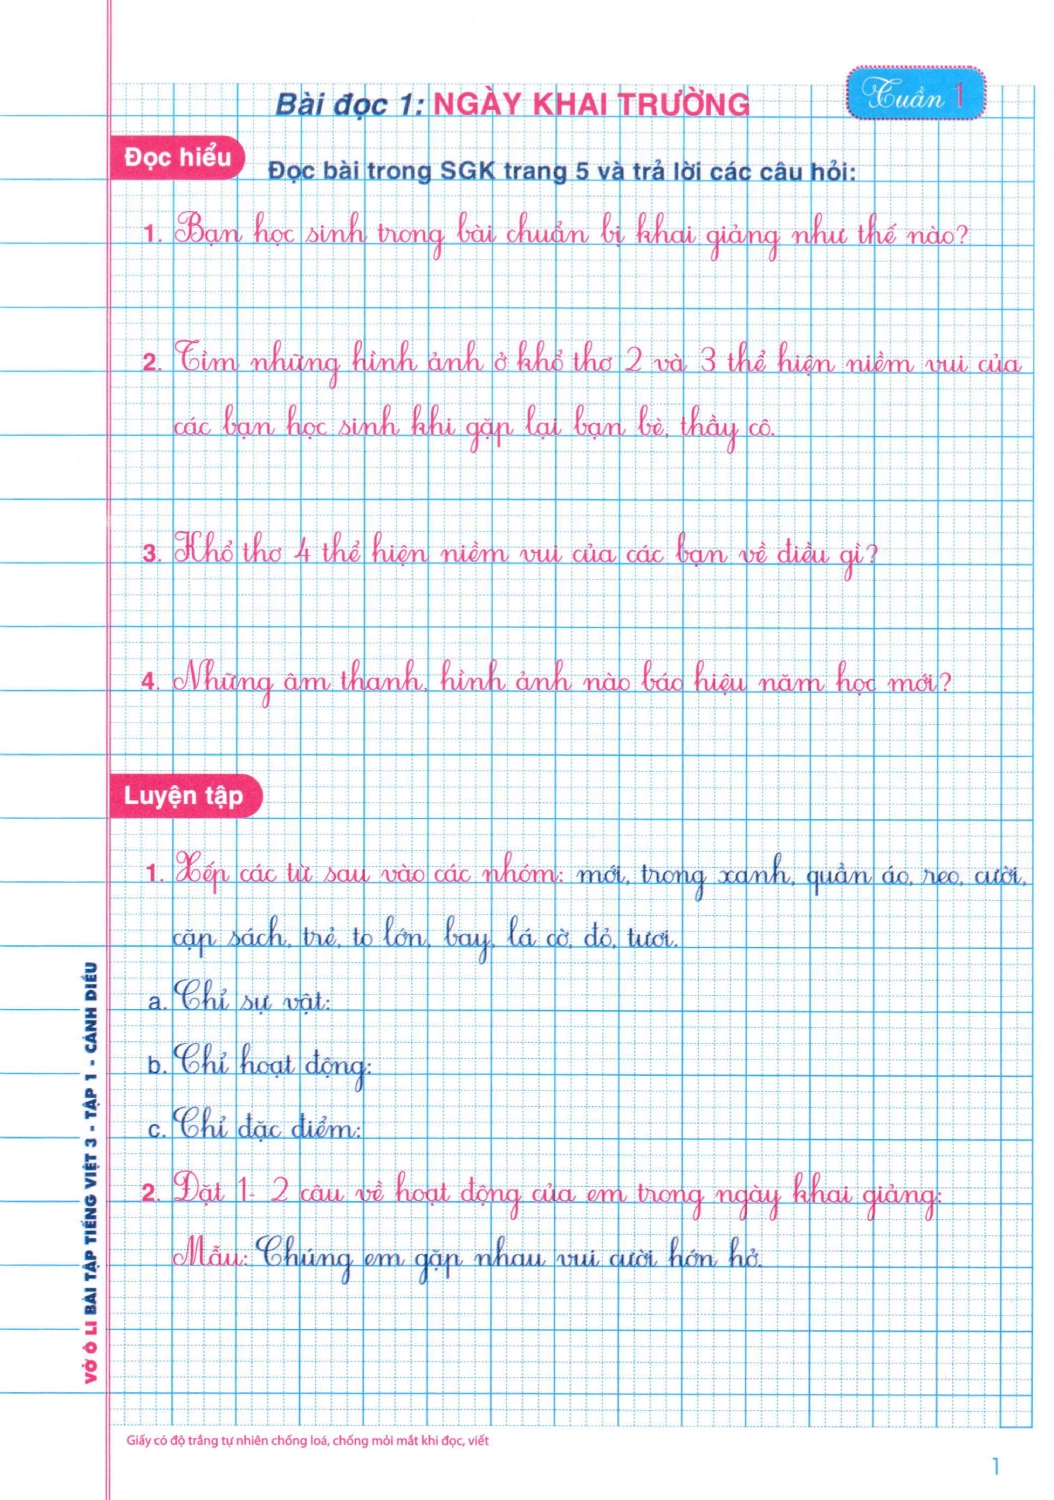 Tuần 1
Bài đọc 1: NGÀY KHAI TRƯỜNG
Đọc hiểu
Đọc bài trong SGK trang 5 và trả lời các câu hỏi:
1. Bạn học sinh trong bài chuẩn bị khai giảng như thế nào?
2. Tìm những hình ảnh ở khổ thơ 2 và 3 thể hiện niềm vui của
các bạn học sinh khi gặp lại bạn bè, thầy cô.
3. Khổ thơ 4 thể hiện niềm vui của các bạn về điều gì?
4. Những âm thanh, hình ảnh nào báo hiệu năm học mới?
Luyện tập
1. Xếp các từ sau vào các nhóm: mới, trong xanh, quần áo, reo, cười,
cặp sách, trẻ, to lớn, bay, lá cờ, đỏ, tươi.
a. Chỉ sự vật:
b. Chỉ hoạt động:
c. Chỉ đặc điểm:
2. Đặt 1- 2 câu về hoạt động của em trong ngày khai giảng:
Mẫu: Chúng em gặp nhau vui cười hớn hở.
VỞ Ô LI BÀI TẬP TIẾNG VIỆT 3 - TẬP 1 - CÁNH DIỀU
Giấy có độ trắng tự nhiên chống loá, chống mỏi mắt khi đọc, viết
1